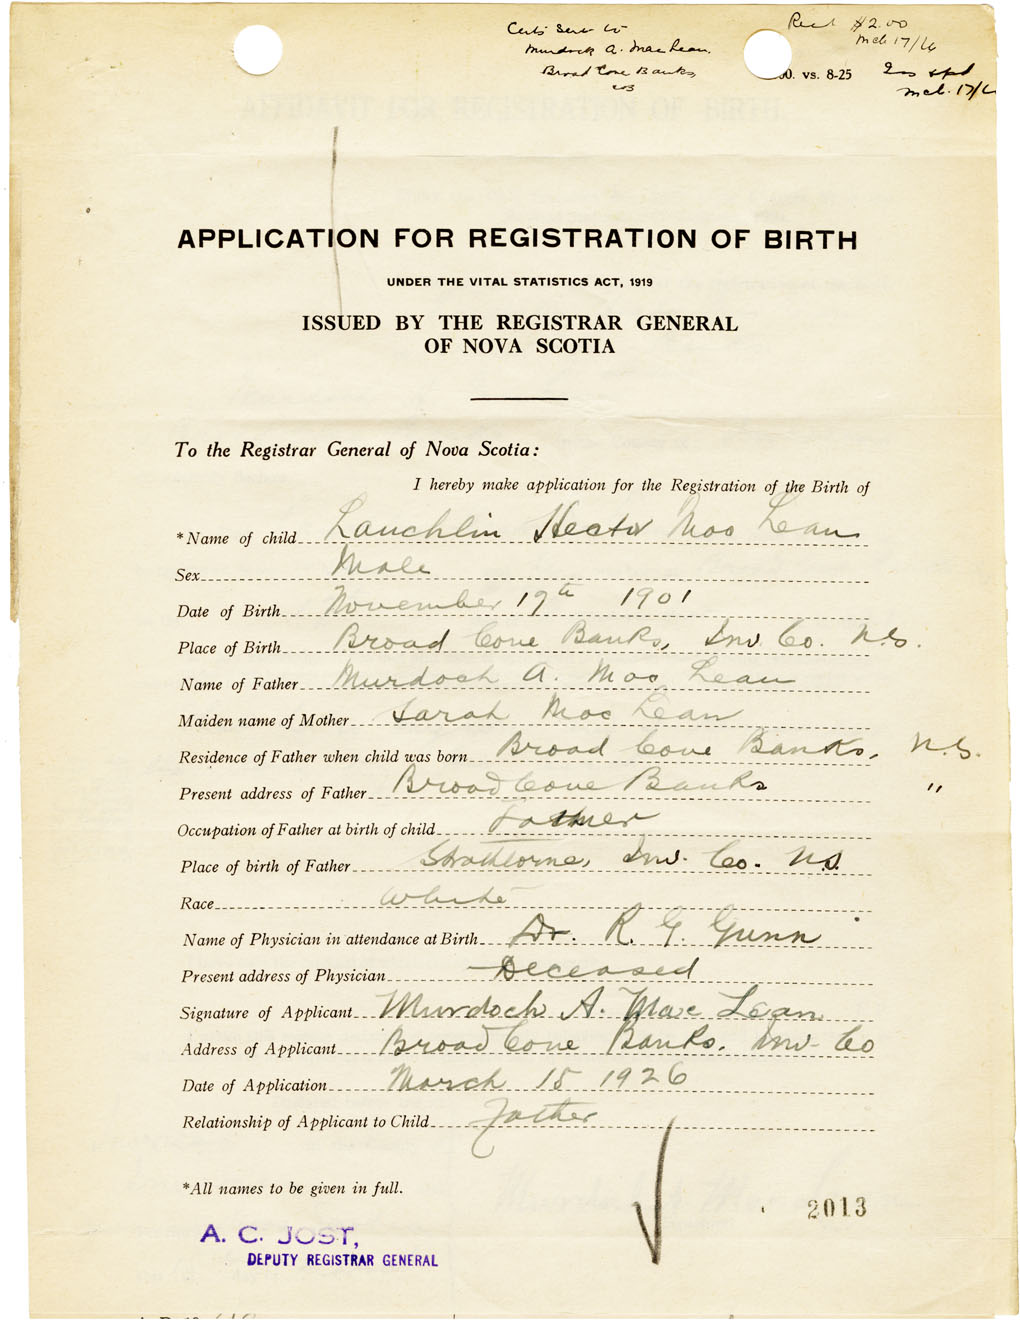 Certs sent to
Murdock A. MacLean.
Broad Cove Banks,
Recd $2.00
Mch 17/26
00. vs. 8-25
Mch. 17/2
APPLICATION FOR REGISTRATION OF BIRTH
UNDER THE VITAL STATISTICS ACT, 1919
ISSUED BY THE REGISTRAR GENERAL
OF NOVA SCOTIA
To the Registrar General of Nova Scotia:
I hereby make application for the Registration of the Birth of
*Name of child Lauchlin Hector Mac Lean
Sex Male
Date of Birth November 19th 1901
Place of Birth Broad Cove Banks, Inv. Co. N.S.
Name of Father Murdoch A. Mac Lean
Maiden name of Mother Sarah Mac Lean
Residence of Father when child was born Broad Cove Banks, N.S.
Present address of Father Broad Cove Banks "
Occupation of Father at birth of child Farmer
Place of birth of Father Strathlorne, Inv. Co. N.S.
Race White
Name of Physician in attendance at Birth Dr. R. G. Gunn
Present address of Physician Deceased
Signature of Applicant Murdoch A. Mac Lean
Address of Applicant Broad Cove Banks. Inv. Co
Date of Application March 15 1926
Relationship of Applicant to Child Father
*All names to be given in full.
2013
A. C. JOST,
DEPUTY REGISTRAR GENERAL